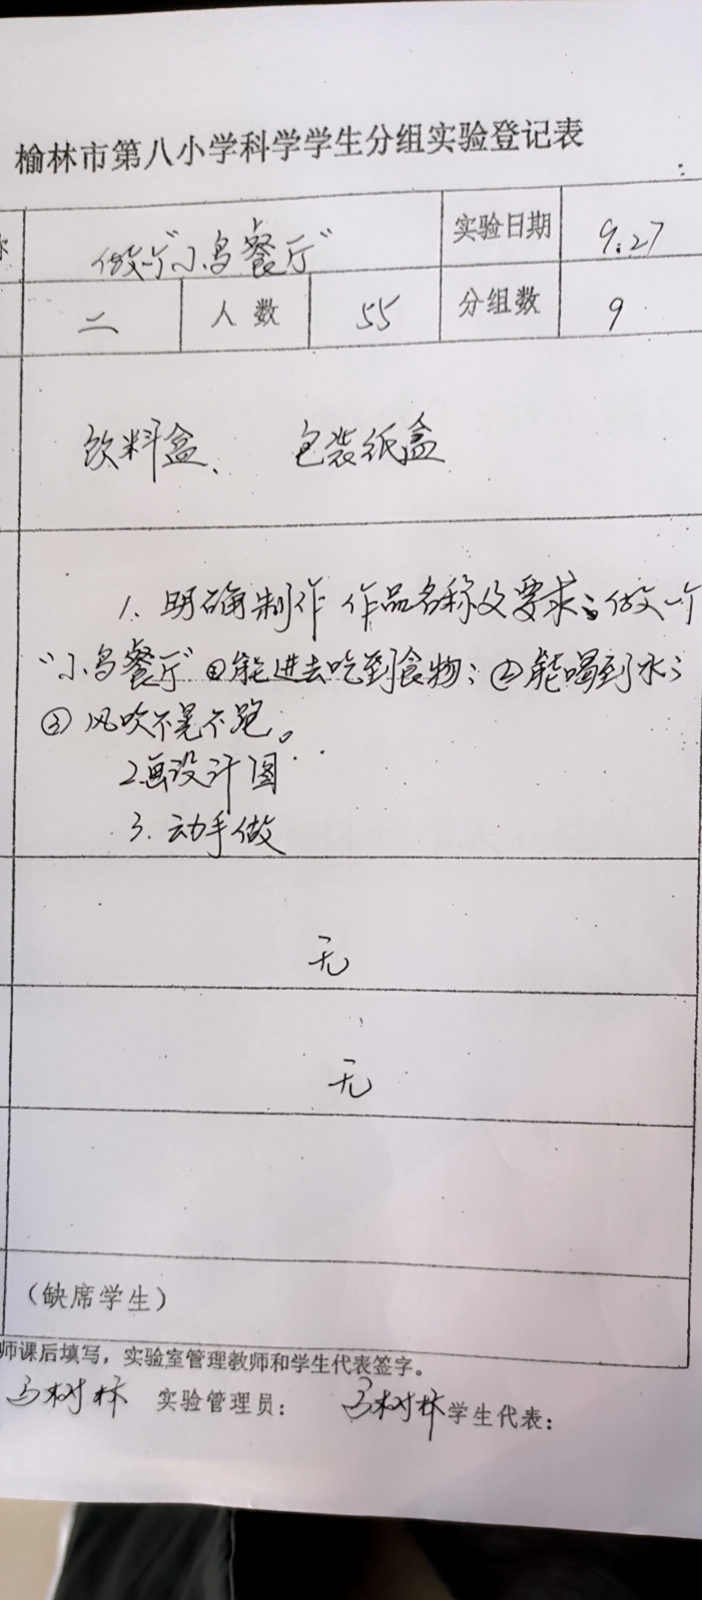 榆林市第八小学科学学生分组实验登记表
称 做个"小鸟餐厅" 实验日期 9.27
二 人数 55 分组数 9
饮料盒、 包装纸盒
1. 明确制作作品名称及要求：做一个
"小鸟餐厅"①能进去吃到食物；②能喝到水；
③风吹不晃不跑。
2.画设计图
3.动手做
无
无
（缺席学生）
师课后填写，实验室管理教师和学生代表签字。
马树林 实验管理员： 马树林 学生代表：